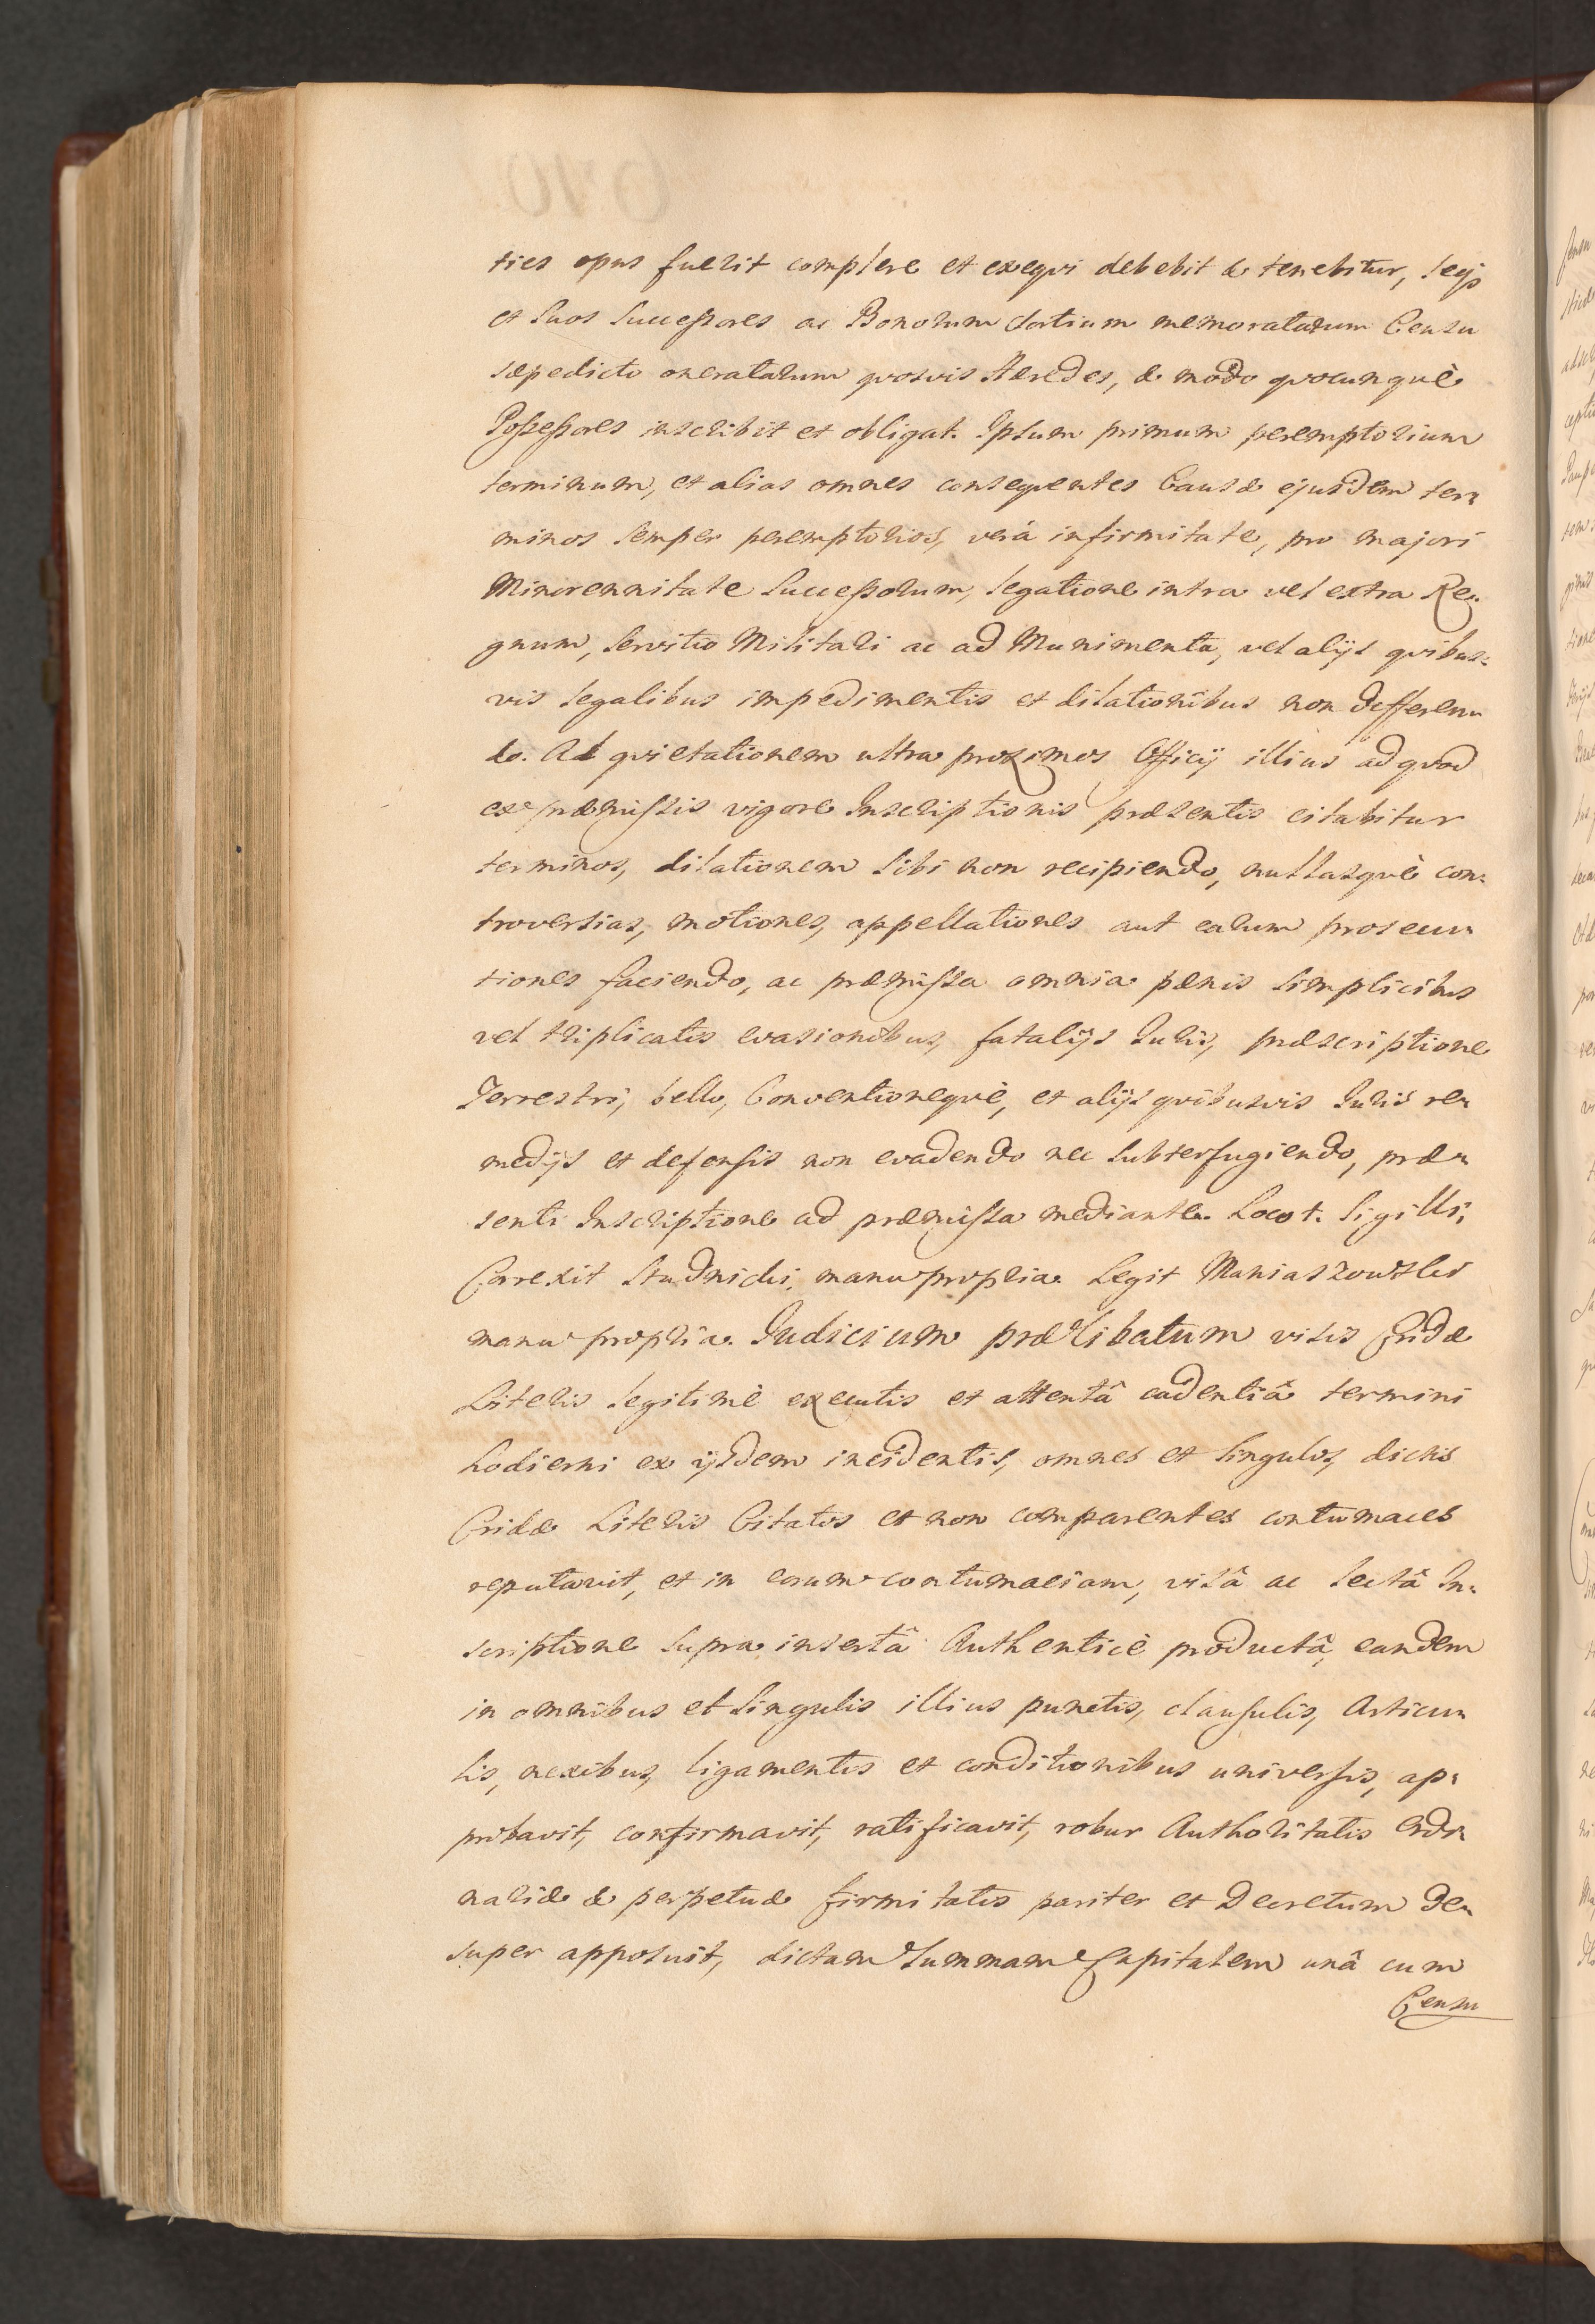 ties opus fuerit complere et exequi debebit & tenebitur, seqз
et Suos Successores ac Bonorum Sortium memoratarum Censu
sæpedicto oneratarum quosvis Hæredes, & modo quocunquè
Possessores inscribit et obligat. Ipsum primum peremptorium
terminum, et alios omnes consequentes Causæ ejusdem ter-
minos semper peremptorios, verá infirmitate, pro majori
Minorennitate Successorum, legatione intra vel extra Re-
gnum, Servitio Militari ac ad Munimenta, vel alijs quibus-
vis legalibus impedimentis et dilationibus non defferen-
do. Ad quietationem ultra proximos Officij illius ad quod
ex præmissis vigore Inscriptionis præsentis citabitur
terminos, dilationem Sibi non recipiendo, nullasquè con-
troversias, motiones, appellationes aut earum prosecu-
tiones faciendo, ac præmissa omnia pænis simplicibus
vel triplicatis evasionibus, fatalijs Juris, præscriptione
Terrestri, bello, Conventionequè, et alijs quibusvis Juris re-
medijs et defensis non evadendo nec subterfugiendo, præ-
senti Inscriptione ad præmissa mediante. Locot. Sigilli,
Correxit Studnicki, manu propria. Legit Maniaszowsky
manu propria. Judicium prælibatum visis Cridæ
Literis legitimè executis et attentâ cadentiâ termini
hodierni ex ijsdem incidentis, omnes et Singulos, dictis
Cridæ Literis Citatos et non comparentes contumaces
reputavit, et in eorum contumaciam, visâ ac lectâ In-
scriptione supra insertâ Authenticè productâ, eandem
in omnibus et Singulis illius punctis, clausulis, Articu-
lis, nexibus, ligamentis et conditionibus universis, ap-
probavit, confirmavit, ratificavit, robur Authoritatis Ordi-
nariæ & perpetuæ firmitatis pariter et Decretum De-
super apposuit, dictam Summam Capitalem unâ cum
Censu